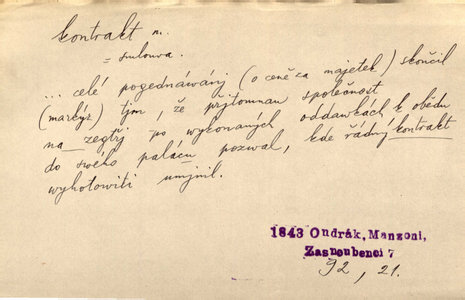 kontrakt m.
= smlouva.
... celé pogednáwánj (o ceně za majetek) skončil
(markýz) tjm, že přjtomnau společnost
na zegtřj po wykonaných oddawkách k obědu
do swého palácu pozwal, kde řádný kontrakt
wyhotowiti umjnil.
1843 Ondrák, Manzoni,
Zasnoubenci 7
92, 21.